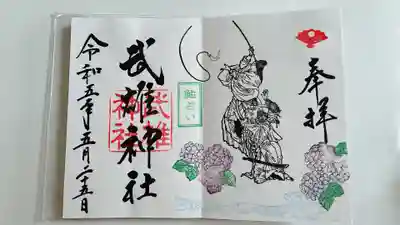 奉拝
鮎占い
武雄神社
武雄
神社
令和五年五月二十五日